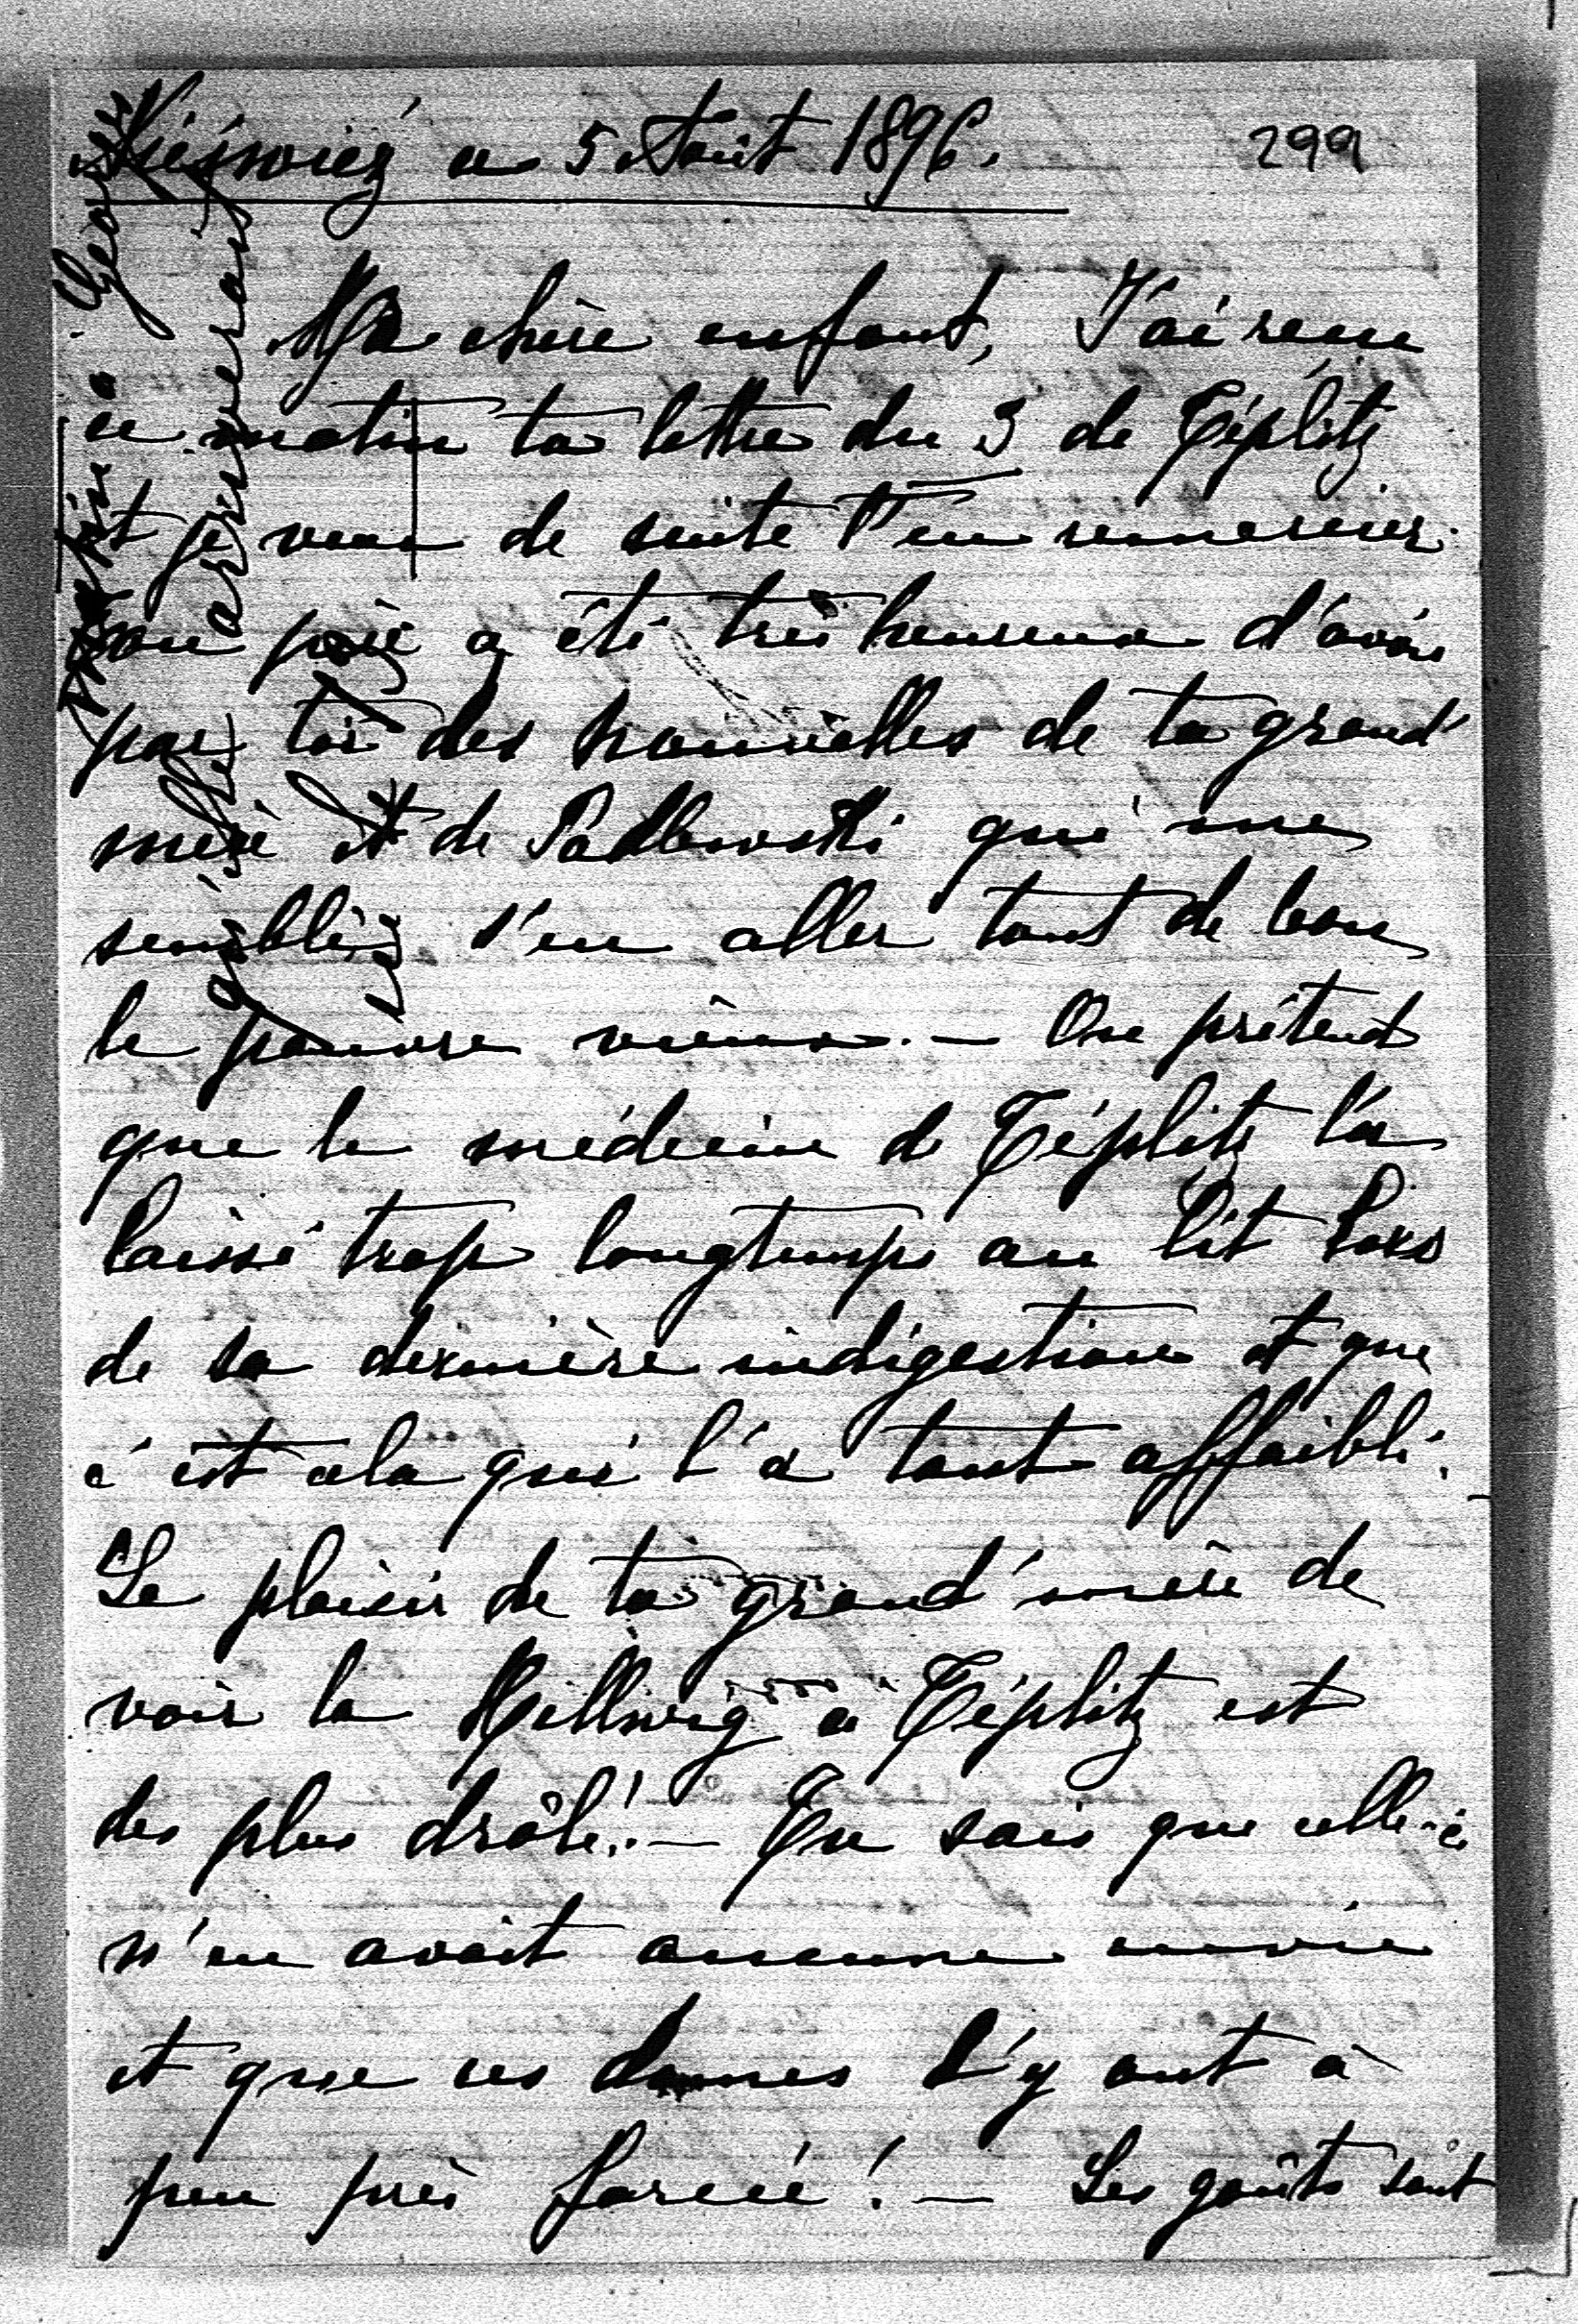 Niéświeź ce 5 Août 1896.
299
Ma chère enfant, J'ai reçu
ce matin ta lettre du 3 de Téplitz
et je veux de suite t'en remercier.
Ton père a été très heureux d'avoir
par toi des nouvelles de ta grand'
mère et de Padlewski qui me
semble s'en aller tout de bon
le pauvre vieux. — On prétend
que le médecin de Téplitz l'a
laissé trop longtemps au lit lors
de sa dernière indigestion et que
c'est cela qui l'a tant affaibli.
Le plaisir de ta grand'mère de
voir la Hellwig à Téplitz est
des plus drôle! — Tu sais que celle-ci
n'en avait aucune envie
et que ces dames l'y ont à
peu près forcée! — Les goûts sont